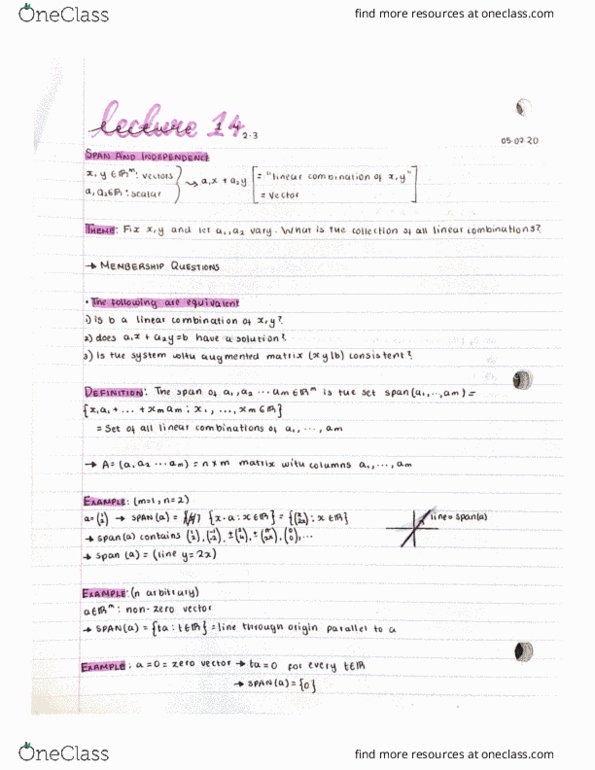 OneClass
find more resources at oneclass.com
lecture 14 2.3
05.02.20
SPAN AND INDEPENDENCE
x, y ∈ ℝᵐ: vectors
a₁ a₂∈ℝ: scalar
⇝ a₁x + a₂y
= "linear combination of x,y"
= vector
THEME: Fix x,y and let a₁,a₂ vary. What is the collection of all linear combinations?
→ MEMBERSHIP QUESTIONS
• The following are equivalent
1) is b a linear combination of x,y?
2) does a₁x + a₂y=b have a solution?
3) Is the system with augmented matrix (x y|b) consistent?
DEFINITION: The span of a₁,a₂ ··· am ∈ℝᵐ is the set span(a₁,..,am) =
{x₁a₁ +... + xmam : x₁, ..., xm ∈ℝ}
= Set of all linear combinations of a₁, ···, am
→ A= (a₁ a₂ ··· am) = n×m matrix with columns a₁,..., am
EXAMPLE: (m=1, n=2)
a= (1 2) → SPAN(a) = {x·a : x∈ℝ} = {(x 2x) : x ∈ℝ}
line = span(a)
→ span(a) contains (1 2), (-1 -2), ± ± (0 0),...
→ span (a) = (line y = 2x)
EXAMPLE: (n arbitrary)
a∈ℝᵐ: non-zero vector
→ SPAN(a) = {ta : t∈ℝ} = line through origin parallel to a
EXAMPLE: a=0= zero vector → ta=0 for every t∈ℝ
→ SPAN(a) = {0}
OneClass
find more resources at oneclass.com